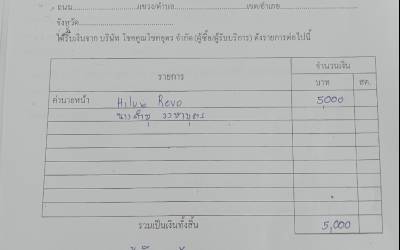 ถนน..............................แขวง/ตำบล..............................เขต/อำเภอ..............................
จังหวัด..............................
ได้รับเงินจาก บริษัท โชคคูณโชคยูตร จำกัด (ผู้ซื้อ/ผู้รับบริการ) ดังรายการต่อไปนี้
รายการ จำนวนเงิน
บาท สต.
ค่านายหน้า Hilux Revo 5,000
รวมเป็นเงินทั้งสิ้น 5,000